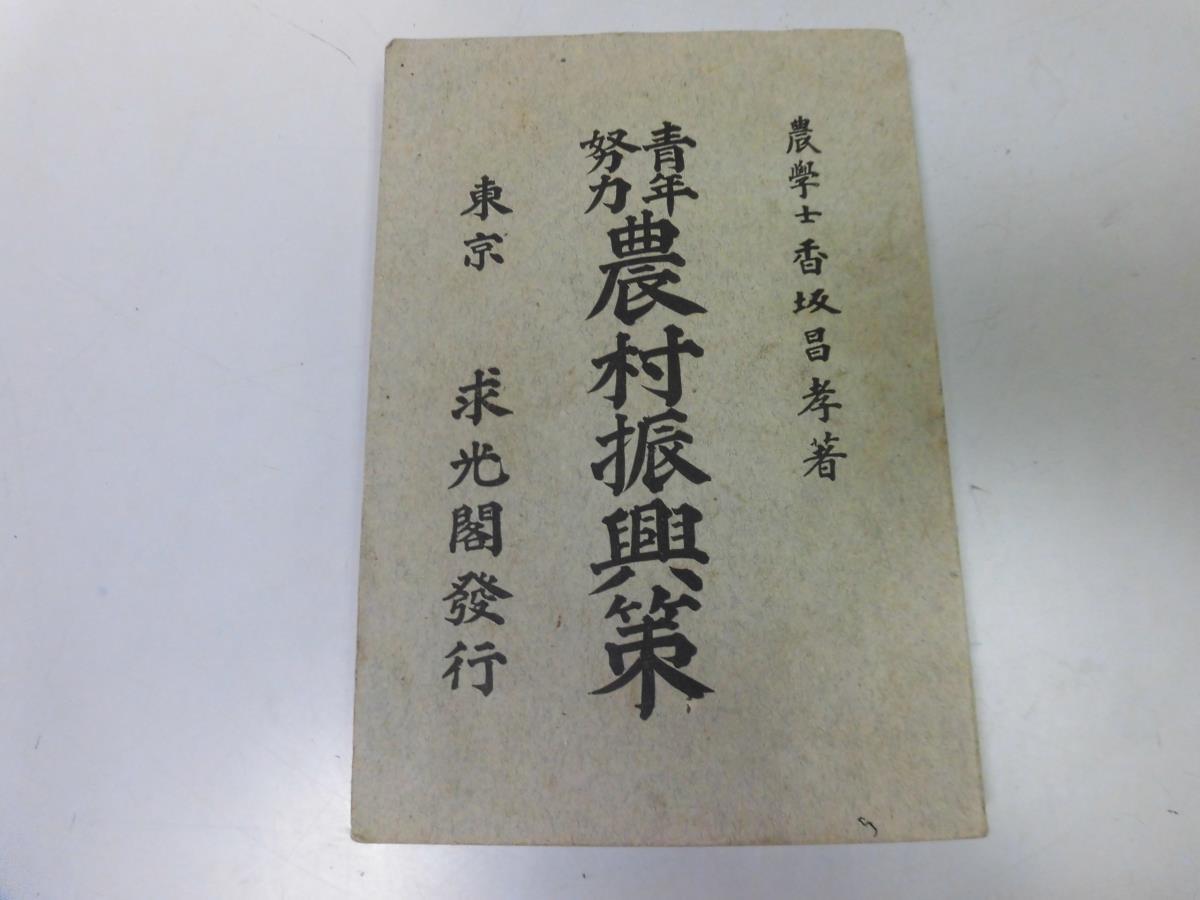 農學士香坂昌孝著
青年
努力
農村振興策
東京 求光閣發行